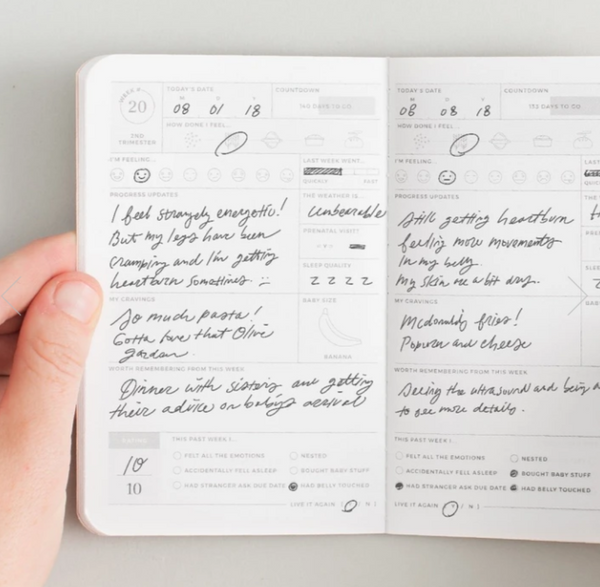 WEEK #
20
2ND
TRIMESTER
TODAY'S DATE
M D Y
08 01 18
COUNTDOWN
140 DAYS TO GO
HOW DOES I FEEL...
I'M FEELING...
LAST WEEK WENT...
QUICKLY FAST
PROGRESS UPDATES
I feel strangely energetic!
But my legs have been
cramping and I'm getting
heartburn sometimes. :-
THE WEATHER IS...
unbearable
PRENATAL VISIT?
SLEEP QUALITY
Z Z Z Z
MY CRAVINGS
So much pasta!
Gotta love that Olive
garden.
BABY SIZE
BANANA
WORTH REMEMBERING FROM THIS WEEK
Dinner with sisters and getting
their advice on baby's arrival
10
10
THIS PAST WEEK I...
FELT ALL THE EMOTIONS NESTED
ACCIDENTALLY FELL ASLEEP BOUGHT BABY STUFF
HAD STRANGER ASK DUE DATE HAD BELLY TOUCHED
LIVE IT AGAIN [ Y / N ]
TODAY'S DATE
M D Y
08 08 18
COUNTDOWN
DAYS TO GO
HOW DOES I FEEL...
I'M FEELING...
PROGRESS UPDATES
Still getting heartburn
feeling more movements
in my belly.
My skin is a bit dry.
MY CRAVINGS
Mcdonalds fries!
Popcorn and cheese
WORTH REMEMBERING FROM THIS WEEK
Seeing the ultrasound and being
to see more details.
THIS PAST WEEK I...
FELT ALL THE EMOTIONS NESTED
ACCIDENTALLY FELL ASLEEP BOUGHT BABY STUFF
HAD STRANGER ASK DUE DATE HAD BELLY TOUCHED
LIVE IT AGAIN [ Y / N ]